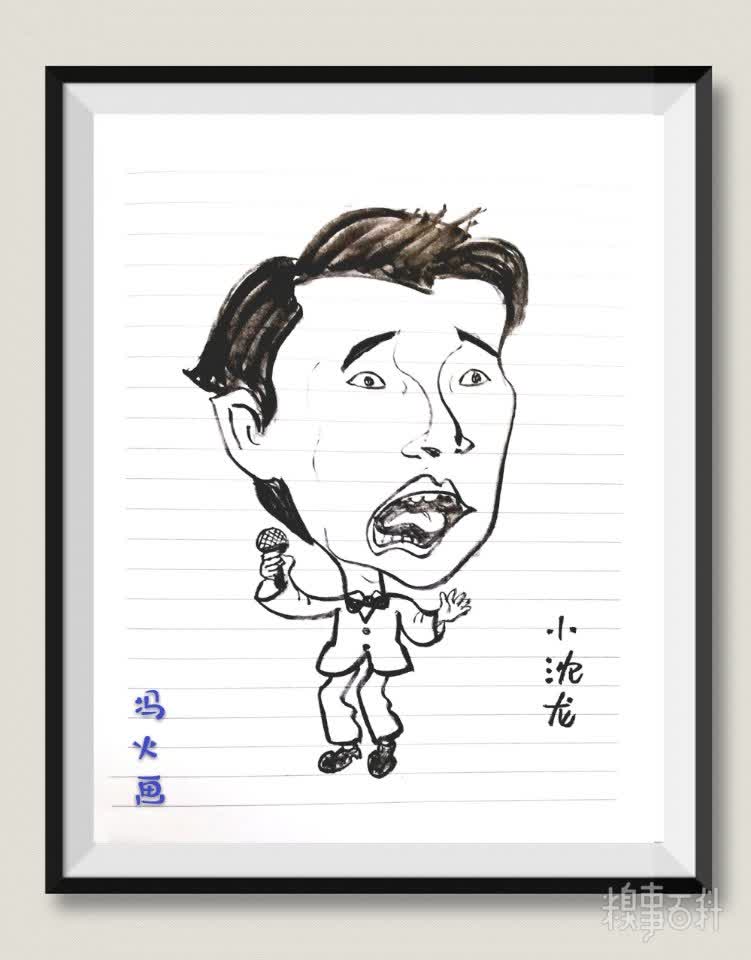 小沈龙
冯火画
糗事百科